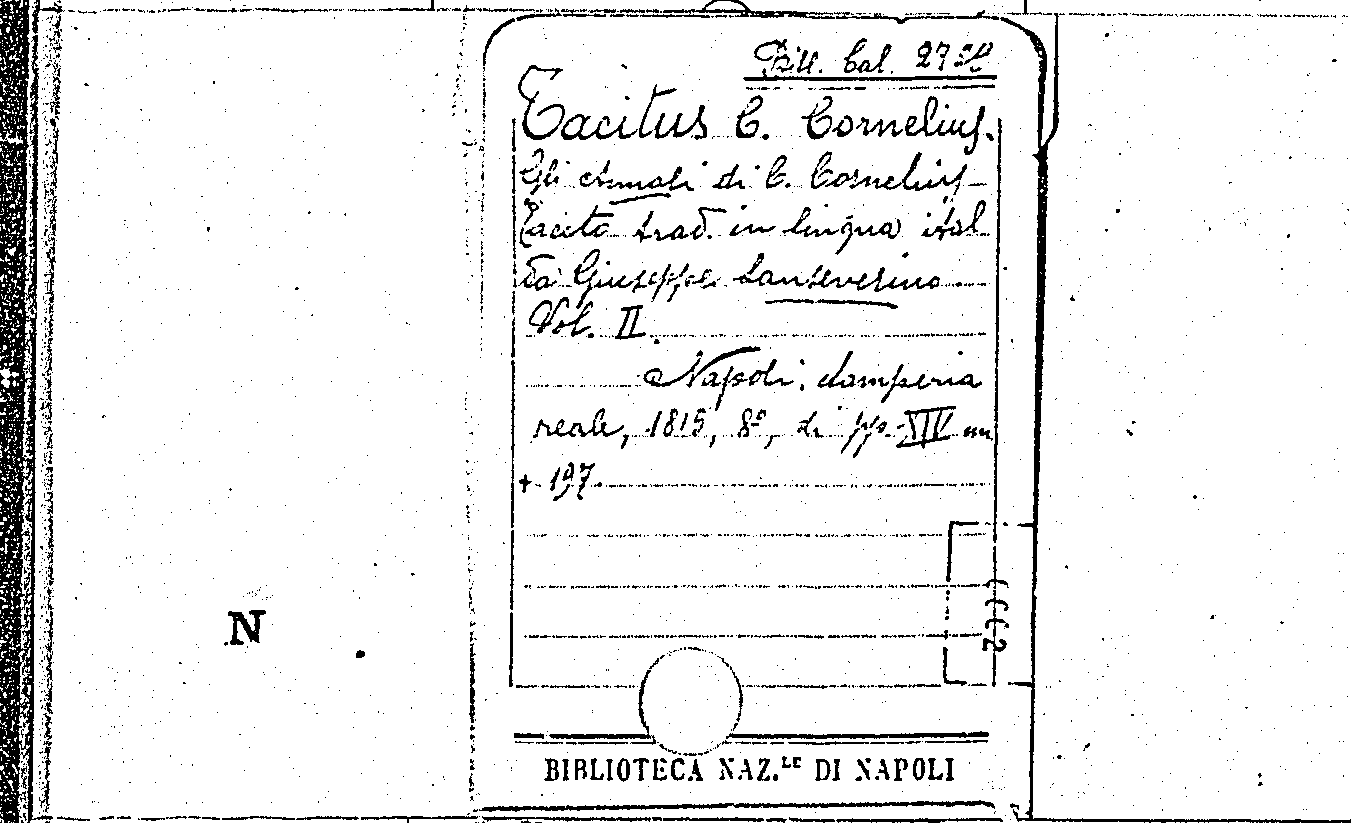 Bill. Cal. 27
Tacitus C. Cornelius.
Gli Annali di C. Cornelius
Tacito trad. in lingua ital
da Giuseppe Sanseverino
Vol. II.
Napoli, stamperia
reale, 1815, 8º, di pp. XIV
+ 197.
N
BIBLIOTECA NAZ.LE DI NAPOLI